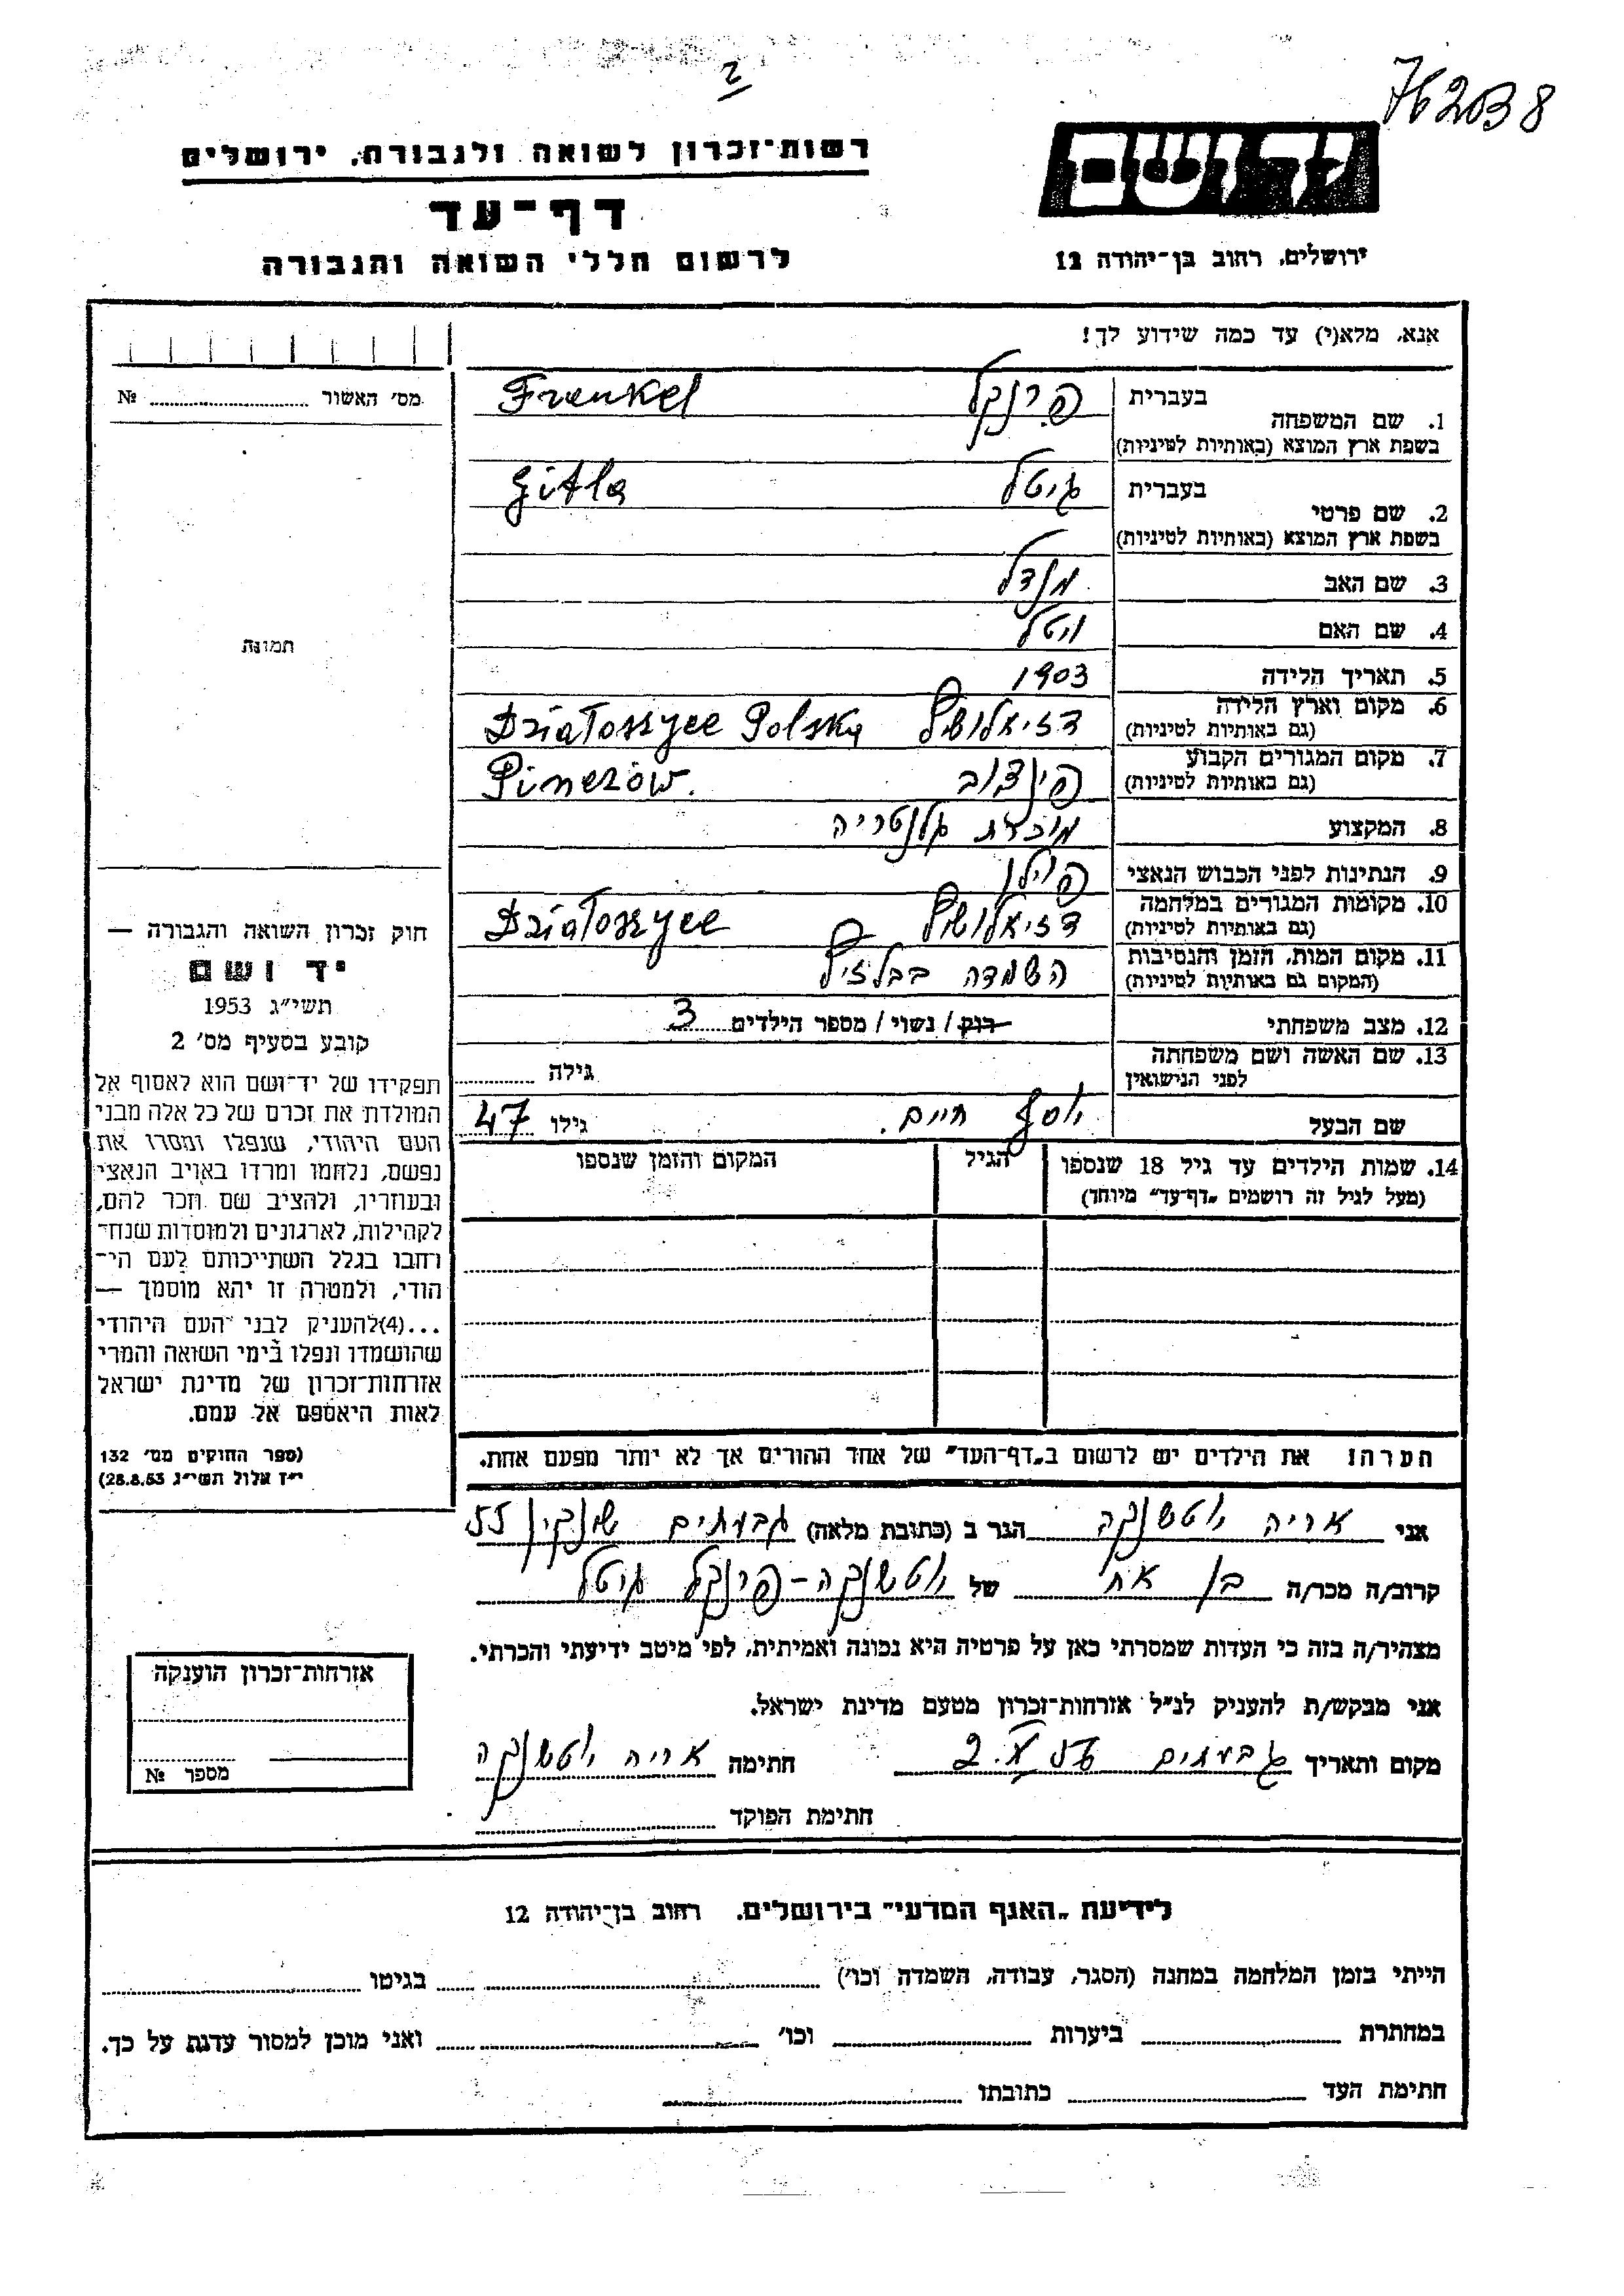 762038
2
ידושם
רשות־זכרון לשואה ולגבורה, ירושלים
דף־עד
לרשום חללי השואה והגבורה
ירושלים, רחוב בן־יהודה 12
אנא, מלא(י) עד כמה שידוע לך!
מס׳ האשור № 
1. שם המשפחה בעברית פרנקל Frenkel
בשפת ארץ המוצא (באותיות לטיניות)
2. שם פרטי בעברית גיטל Gitla
בשפת ארץ המוצא (באותיות לטיניות)
3. שם האב מנדל
4. שם האם ויטל
תמונה
5. תאריך הלידה 1903
6. מקום וארץ הלידה דזיאלושיץ Dziatoszyce Polska
(גם באותיות לטיניות)
7. מקום המגורים הקבוע פינצוב Pinczów.
(גם באותיות לטיניות)
8. המקצוע מוכרת גלנטריה
9. הנתינות לפני הכבוש הנאצי פולין
10. מקומות המגורים במלחמה דזיאלושיץ Dziatoszyce
(גם באותיות לטיניות)
11. מקום המות, הזמן והנסיבות השמדה בבלזיץ
(המקום גם באותיות לטיניות)
12. מצב משפחתי רוק / נשוי / מספר הילדים 3
13. שם האשה ושם משפחתה גילה
לפני הנישואין
שם הבעל יוסף חיים. גילו 47
14. שמות הילדים עד גיל 18 שנספו הגיל המקום והזמן שנספו
(מעל לגיל זה רושמים „דף־עד״ מיוחד)
חוק זכרון השואה והגבורה —
יד ושם
תשי״ג 1953
קובע בסעיף מס׳ 2
תפקידו של יד־ושם הוא לאסוף אל
המולדת את זכרם של כל אלה מבני
העם היהודי, שנפלו ומסרו את
נפשם, נלחמו ומרדו באויב הנאצי
ובעוזריו, ולהציב שם וזכר להם,
לקהילות, לארגונים ולמוסדות שנח־
רחבו בגלל השתייכותם לעם הי־
הודי, ולמטרה זו יהא מוסמך —
...(4)להעניק לבני העם היהודי
שהושמדו ונפלו בימי השואה והמרי
אזרחות־זכרון של מדינת ישראל
לאות היאספם אל עמם.
(ספר החוקים מס׳ 132
י״ז אלול תשי״ג 28.8.53)
הערה: את הילדים יש לרשום ב„דף־העד״ של אחד ההורים אך לא יותר מפעם אחת.
אני אריה יוטשנקה הגר ב (כתובת מלאה) גבעתים שנקין 55
קרוב/ה מכר/ה בן אח של יוטשנקה־פרנקל גיטל
מצהיר/ה בזה כי העדות שמסרתי כאן על פרטיה היא נכונה ואמיתית, לפי מיטב ידיעתי והכרתי.
אני מבקש/ת להעניק לנ״ל אזרחות־זכרון מטעם מדינת ישראל.
מקום ותאריך גבעתים חתימה אריה יוטשנקה
חתימת הפוקד
אזרחות־זכרון הוענקה
מספר №
לידיעת „האגף המדעי״ בירושלים, רחוב בן־יהודה 12
הייתי בזמן המלחמה במחנה (הסגר, עבודה, השמדה וכו׳) בגיטו
במחתרת ביערות וכו׳ ואני מוכן למסור עדות על כך.
חתימת העד כתובתו